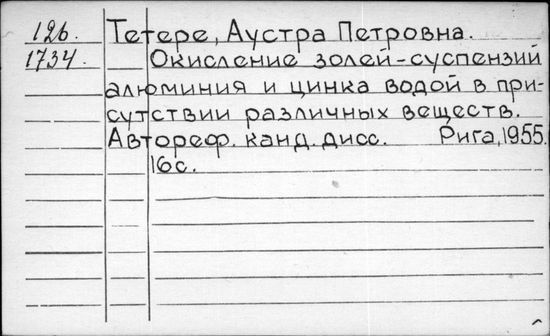 126. Тетере, Аустра Петровна.
1734. Окисление золей-суспензий
алюминия и цинка водой в при-
сутствии различных веществ.
Автореф. канд. дисс. Рига, 1955.
16 с.